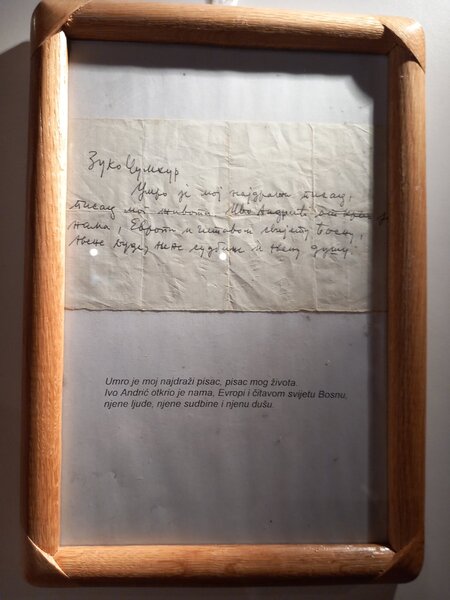 Зуко Џумхур
Умро је мој најдражи писац,
писац мог живота. Иво Андрић
нама, Европи и читавом свијету Босну,
њене људе, њене судбине и њену душу.
Umro je moj najdraži pisac, pisac mog života.
Ivo Andrić otkrio je nama, Evropi i čitavom svijetu Bosnu,
njene ljude, njene sudbine i njenu dušu.